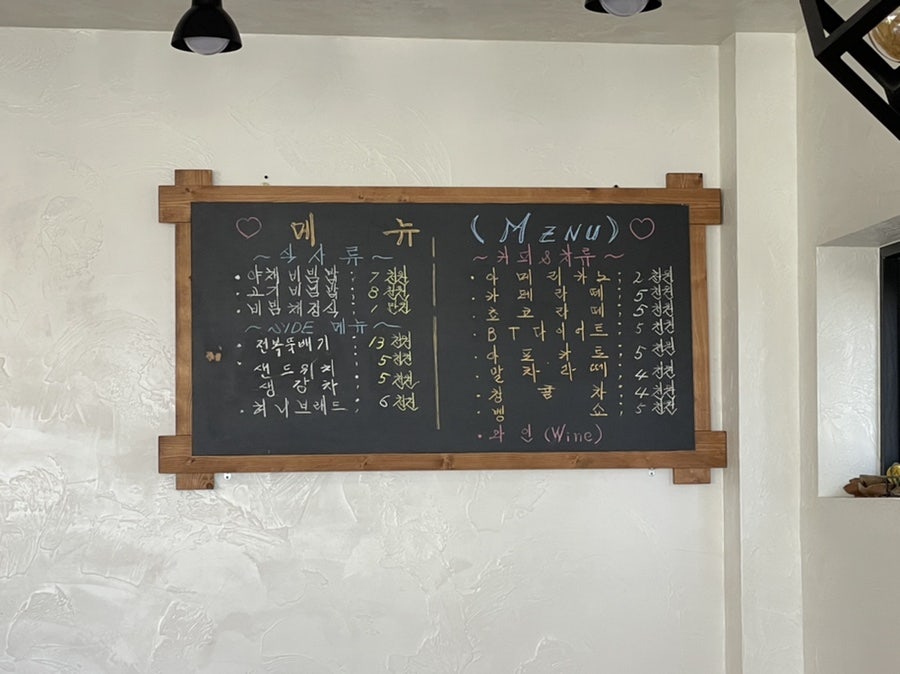 메 뉴 (MENU)
~식사류~
· 야채비빔밥 : 7천원
· 고기비빔밥 : 8천원
· 비빔채정식 : 1만원
~SIDE 메뉴~
· 전복뚝배기 : 13천원
· 샌드위치 : 5천원
· 생강차 : 5천원
· 허니브레드 : 6천원
~커피&차류~
· 아메리카노 : 2천원
· 카페라떼 : 5천원
· 초코라떼 : 5천원
· BT다이어트 : 5천원
· 아포카토 : 5천원
· 말차라떼 : 4천원
· 청귤차 : 4천원
· 뱅쇼 : 5천원
· 와인 (Wine)